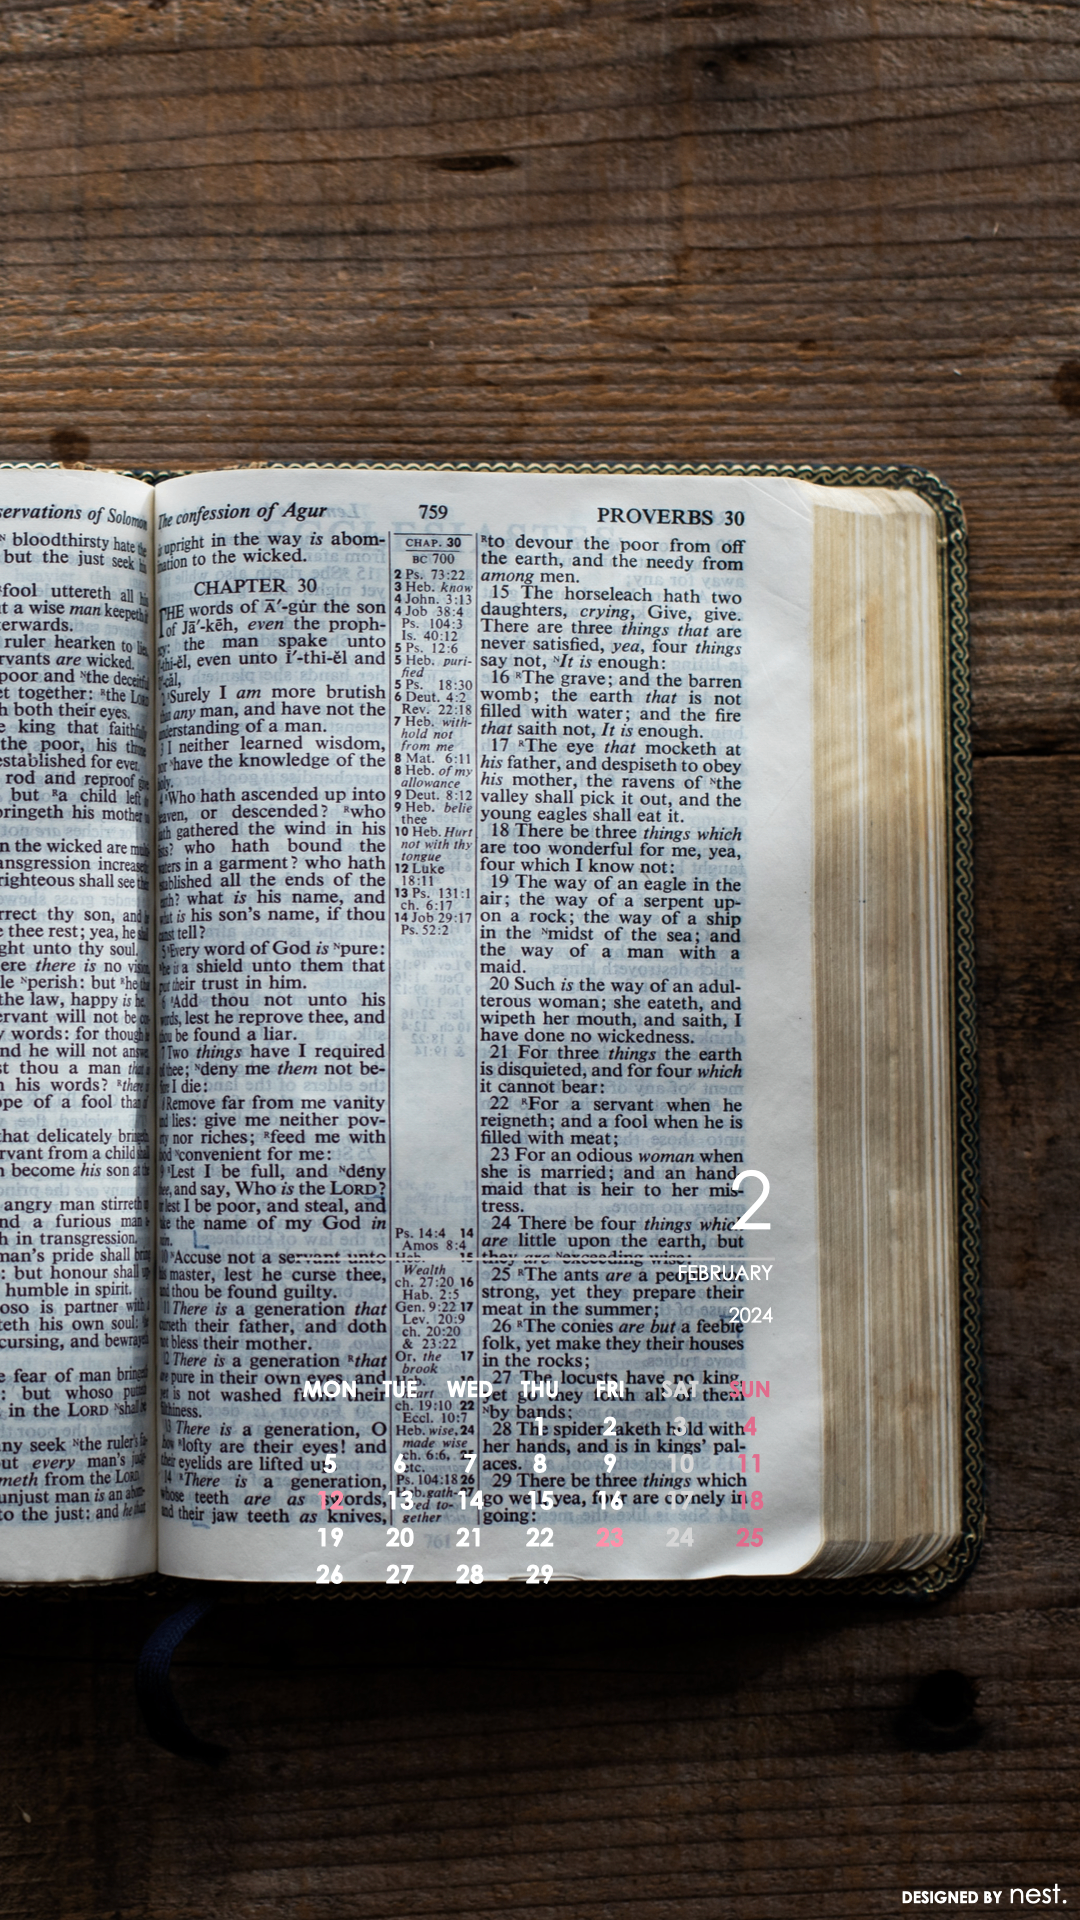 servations of Solomon
bloodthirsty hate the
but the just seek his
fool uttereth all his
a wise man keepeth
terwards.
ruler hearken to lies,
servants are wicked.
poor and the deceitful
together: the LORD
both their eyes.
king that faithfully
the poor, his throne
established for ever.
rod and reproof give
but a child left
bringeth his mother
the wicked are
transgression increaseth
righteous shall see
correct thy son, and
thee rest; yea, he
unto thy soul.
there is no vision,
perish: but he
the law, happy is he.
servant will not be
words: for though
he will not answer
thou a man
his words? there
of a fool than
that delicately bringeth
servant from a child
become his son at
angry man stirreth
and a furious man
in transgression.
man's pride shall bring
: but honour shall
humble in spirit.
whoso is partner with
his own soul:
cursing, and bewrayeth
fear of man bringeth
: but whoso
in the LORD shall
seek the ruler's
every man's
from the LORD.
unjust man is an
to the just: and he
The confession of Agur
759
PROVERBS 30
upright in the way is abom-
ination to the wicked.
CHAPTER 30
THE words of Ā′-gûr the son
of Jā′-kēh, even the proph-
the man spake unto
even unto Ī′-thĭ-ĕl and
Surely I am more brutish
any man, and have not the
understanding of a man.
I neither learned wisdom,
have the knowledge of the
holy.
Who hath ascended up into
heaven, or descended? who
hath gathered the wind in his
fists? who hath bound the
waters in a garment? who hath
established all the ends of the
earth? what is his name, and
what is his son's name, if thou
canst tell?
Every word of God is pure:
he is a shield unto them that
put their trust in him.
6 Add thou not unto his
words, lest he reprove thee, and
thou be found a liar.
7 Two things have I required
of thee; deny me them not be-
I die:
Remove far from me vanity
and lies: give me neither pov-
nor riches; feed me with
convenient for me:
Lest I be full, and deny
thee, and say, Who is the LORD?
or lest I be poor, and steal, and
take the name of my God in
10 Accuse not a servant unto
his master, lest he curse thee,
and thou be found guilty.
There is a generation that
curseth their father, and doth
not bless their mother.
12 There is a generation that
are pure in their own eyes, and
yet is not washed from their
filthiness.
There is a generation, O
how lofty are their eyes! and
their eyelids are lifted up.
14 There is a generation,
whose teeth are as swords,
and their jaw teeth as knives,
CHAP. 30
BC 700
2 Ps. 73:22
3 Heb. know
4 John. 3:13
4 Job 38:4
Ps. 104:3
Is. 40:12
5 Ps. 12:6
5 Heb. puri-
fied
5 Ps. 18:30
6 Deut. 4:2
Rev. 22:18
7 Heb. with-
hold not
from me
8 Mat. 6:11
8 Heb. of my
allowance
9 Deut. 8:12
9 Heb. belie
thee
10 Heb. Hurt
not with thy
tongue
12 Luke
18:11
13 Ps. 131:1
ch. 6:17
14 Job 29:17
Ps. 52:2
Ps. 14:4 14
Amos 8:4
Wealth
ch. 27:20 16
Hab. 2:5
Gen. 9:22 17
Lev. 20:9
ch. 20:20
& 23:22
Or, the 17
brook
ch. 19:10 22
Eccl. 10:7
Heb. wise, 24
made wise
ch. 6:6,
etc.
Ps. 104:18 26
Heb. gath-
ed to-
gether
to devour the poor from off
the earth, and the needy from
among men.
15 The horseleach hath two
daughters, crying, Give, give.
There are three things that are
never satisfied, yea, four things
say not, It is enough:
16 The grave; and the barren
womb; the earth that is not
filled with water; and the fire
that saith not, It is enough.
17 The eye that mocketh at
his father, and despiseth to obey
his mother, the ravens of the
valley shall pick it out, and the
young eagles shall eat it.
18 There be three things which
are too wonderful for me, yea,
four which I know not:
19 The way of an eagle in the
air; the way of a serpent up-
on a rock; the way of a ship
in the midst of the sea; and
the way of a man with a
maid.
20 Such is the way of an adul-
terous woman; she eateth, and
wipeth her mouth, and saith, I
have done no wickedness.
21 For three things the earth
is disquieted, and for four which
it cannot bear:
22 For a servant when he
reigneth; and a fool when he is
filled with meat;
23 For an odious woman when
she is married; and an hand-
maid that is heir to her mis-
tress.
24 There be four things which
are little upon the earth, but
they are exceeding wise:
25 The ants are a people
strong, yet they prepare their
meat in the summer;
26 The conies are but a feeble
folk, yet make they their houses
in the rocks;
27 The locusts have no king,
yet go they forth all of them
by bands;
28 The spider taketh hold with
her hands, and is in kings' pal-
aces.
29 There be three things which
go well, yea, four are comely in
going:
2
FEBRUARY
2024
MON TUE WED THU FRI SAT SUN
1 2 3 4
5 6 7 8 9 10 11
12 13 14 15 16 17 18
19 20 21 22 23 24 25
26 27 28 29
DESIGNED BY nest.